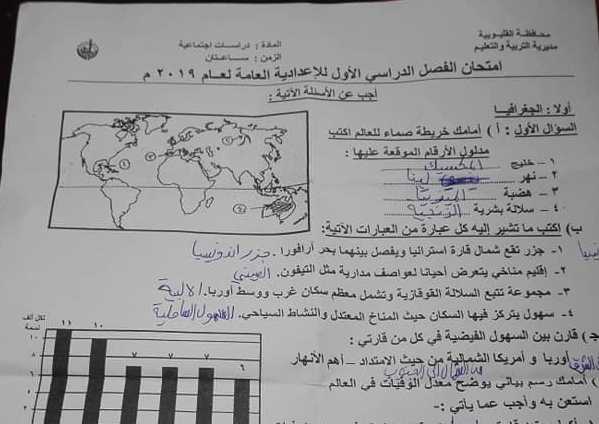 محافظة القليوبية
مديرية التربية والتعليم
المادة : دراسات اجتماعية
الزمن : ساعتان
امتحان الفصل الدراسي الأول للإعدادية العامة لعام ٢٠١٩ م
أجب عن الأسئلة الآتية :
أولا : الجغرافيا
السؤال الأول : أ ) أمامك خريطة صماء للعالم اكتب
مدلول الأرقام الموقعة عليها :
١ – خليج المكسيك
٢ – نهر لينا
٣ – هضبة
٤ – سلالة بشرية الزنجية
ب) اكتب ما تشير إليه كل عبارة من العبارات الآتية:
١ - جزر تقع شمال قارة استراليا ويفصل بينهما بحر أرافورا. جزر اندونيسيا
٢ - إقليم مناخي يتعرض أحيانا لعواصف مدارية مثل التيفون. الصيني
٣ - مجموعة تتبع السلالة القوقازية وتشمل معظم سكان غرب ووسط أوربا. الالبية
٤ - سهول يتركز فيها السكان حيث المناخ المعتدل والنشاط السياحي. السهول الساحلية
ج) قارن بين السهول الفيضية في كل من قارتي :
أوربا و أمريكا الشمالية من حيث الامتداد – أهم الأنهار
من الشمال الى الجنوب
) أمامك رسم بياني يوضح معدل الوفيات في العالم
استعن به وأجب عما يأتي :-
لكل ألف
نسمة
١٠
٨
٦
٤
٢
١١
١٠
٧
٧
٦